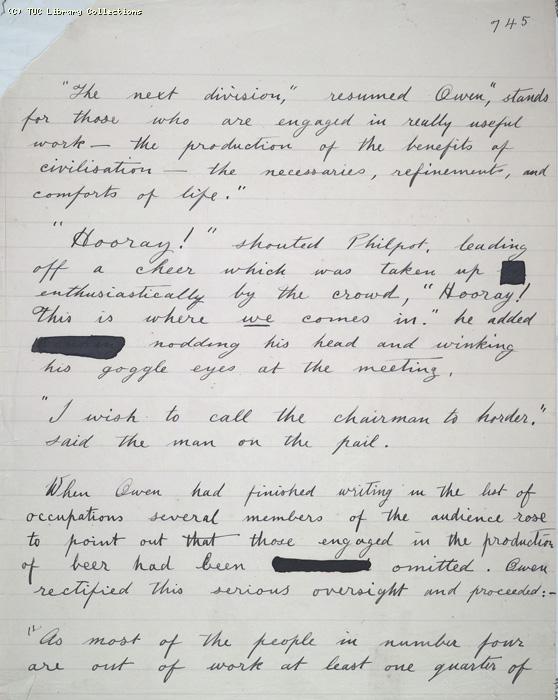 (C) TUC Library Collections
745
"The next division," resumed Owen, "stands
for those who are engaged in really useful
work — the production of the benefits of
civilisation — the necessaries, refinements, and
comforts of life."
"Hooray!" shouted Philpot, leading
off a cheer which was taken up
enthusiastically by the crowd, "Hooray!
This is where we comes in." he added
nodding his head and winking
his goggle eyes at the meeting.
"I wish to call the chairman to horder."
said the man on the pail.
When Owen had finished writing in the list of
occupations several members of the audience rose
to point out that those engaged in the production
of beer had been omitted. Owen
rectified this serious oversight and proceeded:-
"As most of the people in number four
are out of work at least one quarter of